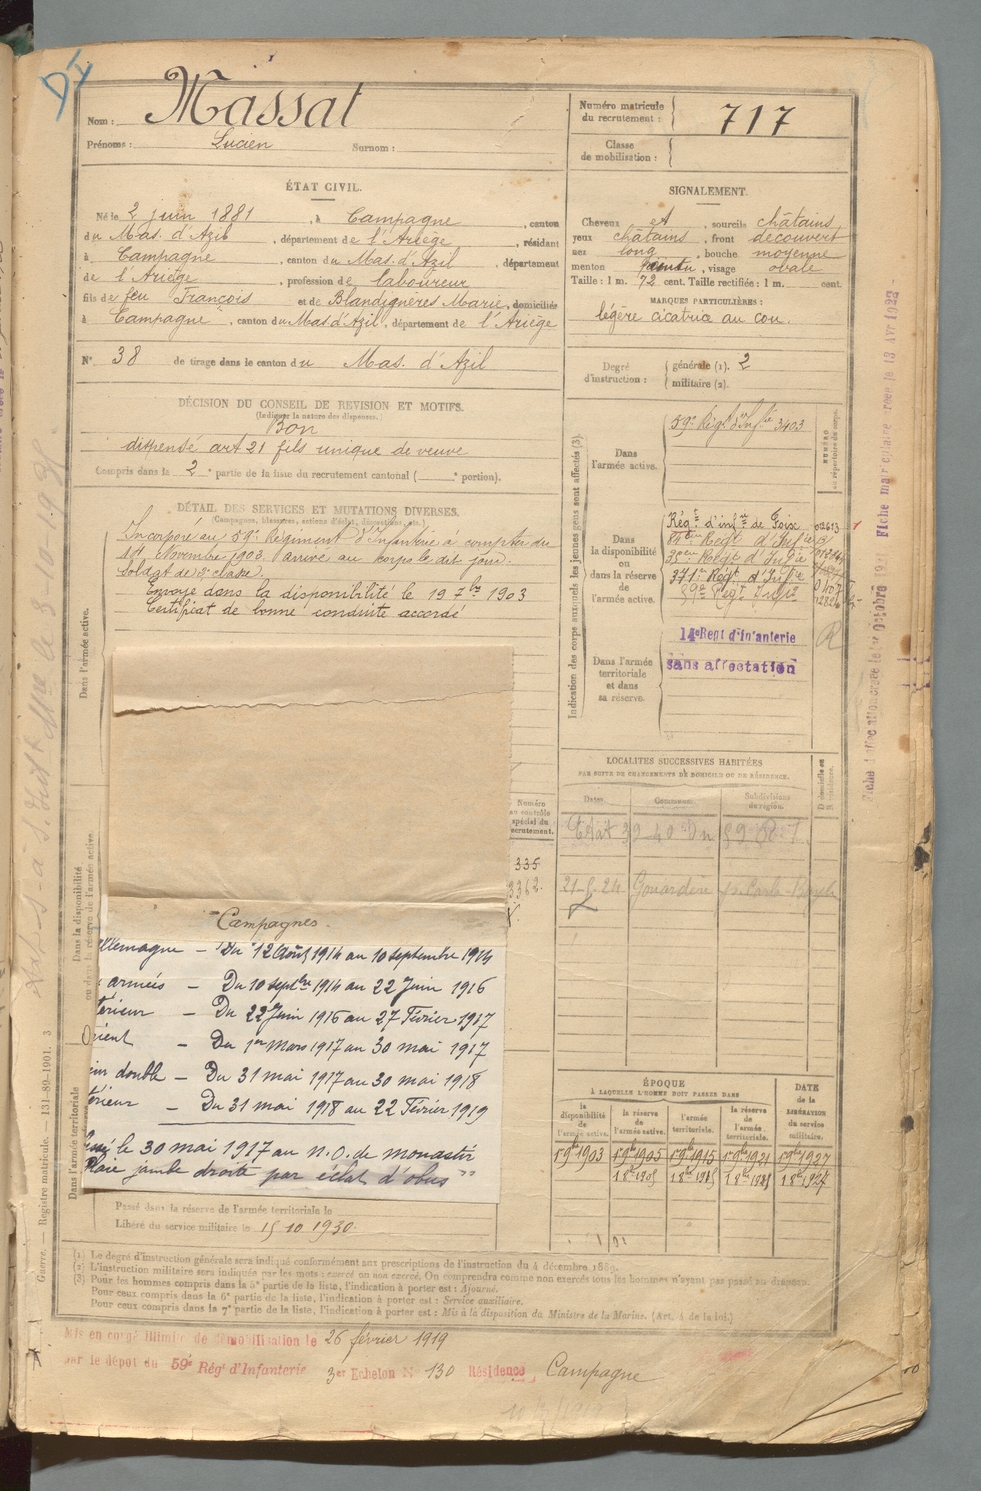 Nom : Massat
Prénoms : Lucien Surnom :
Numéro matricule
du recrutement : 717
Classe
de mobilisation :
ÉTAT CIVIL.
Né le 2 juin 1881, à Campagne, canton
du Mas. d'Azil, département de l'Ariège, résidant
à Campagne, canton du Mas. d'Azil, département
de l'Ariège, profession de laboureur
fils de feu François et de Blandignères Marie, domiciliés
à Campagne, canton du Mas d'Azil, département de l'Ariège
N° 38 de tirage dans le canton du Mas. d'Azil
SIGNALEMENT.
Cheveux et, sourcils châtains
yeux châtains, front découvert
nez long, bouche moyenne
menton, visage ovale
Taille : 1 m. 72 cent. Taille rectifiée : 1 m. cent.
MARQUES PARTICULIÈRES :
légère cicatrice au cou.
Degré
d'instruction :
générale (1). 2
militaire (2).
DÉCISION DU CONSEIL DE REVISION ET MOTIFS.
(Indiquer la nature des dispenses.)
Bon
dispensé art 21 fils unique de veuve
Compris dans la 2e partie de la liste du recrutement cantonal ( e portion).
DÉTAIL DES SERVICES ET MUTATIONS DIVERSES.
(Campagnes, blessures, actions d'éclat, décorations, etc.)
Dans l'armée active.
Incorporé au 59e Régiment d'Infanterie à compter du
Novembre 1903 arrivé au corps le dit jour.
soldat de 2e classe.
Envoyé dans la disponibilité le 19 7bre 1903
Certificat de bonne conduite accordé
Indication des corps auxquels les jeunes gens sont affectés (3).
Dans
l'armée active.
59e Régt d'Infie 3403
NUMÉRO
au répertoire du corps.
Dans
la disponibilité
ou
dans la réserve
de
l'armée active.
Régt d'infie de Foix
Régt d'Infie
Régt d'Infie
371e Régt d'Infie
59e Régt Infie
Dans l'armée
territoriale
et dans
sa réserve.
14e Regt d'infanterie
sans affectation
R
LOCALITÉS SUCCESSIVES HABITÉES
PAR SUITE DE CHANGEMENTS DE DOMICILE OU DE RÉSIDENCE.
Dates. Communes. Subdivisions
de région.
Dans la disponibilité
ou dans la réserve de l'armée active.
Numéro
au contrôle
spécial du
recrutement.
335
3362
Campagnes.
llemagne – Du 12 Août 1914 au 10 septembre 1914
armées – Du 10 septbre 1914 au 22 Juin 1916
térieur – Du 22 Juin 1916 au 27 Février 1917
Orient – Du 1er Mars 1917 au 30 mai 1917
double – Du 31 mai 1917 au 30 mai 1918
térieur – Du 31 mai 1918 au 22 Février 1919
le 30 mai 1917 au N.O. de monastir
Plaie jambe droite par éclat d'obus
Dans l'armée territoriale
ÉPOQUE
À LAQUELLE L'HOMME DOIT PASSER DANS
DATE
de la
LIBÉRATION
du service
militaire.
la
disponibilité
de
l'armée active.
la réserve
de
l'armée active.
l'armée
territoriale.
la réserve
de
l'armée
territoriale.
Passé dans la réserve de l'armée territoriale le
Libéré du service militaire le 15 10 1930.
(1) Le degré d'instruction générale sera indiqué conformément aux prescriptions de l'instruction du 4 décembre 1889.
(2) L'instruction militaire sera indiquée par les mots : exercé ou non exercé. On comprendra comme non exercés tous les hommes n'ayant pas passé au drapeau.
(3) Pour les hommes compris dans la 5e partie de la liste, l'indication à porter est : Ajourné.
Pour ceux compris dans la 6e partie de la liste, l'indication à porter est : Service auxiliaire.
Pour ceux compris dans la 7e partie de la liste, l'indication à porter est : Mis à la disposition du Ministre de la Marine. (Art. 4 de la loi.)
Guerre. — Registre matricule. — 131-89-1901. 3
Mis en congé illimité de démobilisation le 26 février 1919
par le dépôt du 59e Régt d'Infanterie 3er Echelon N° 130 Résidence Campagne